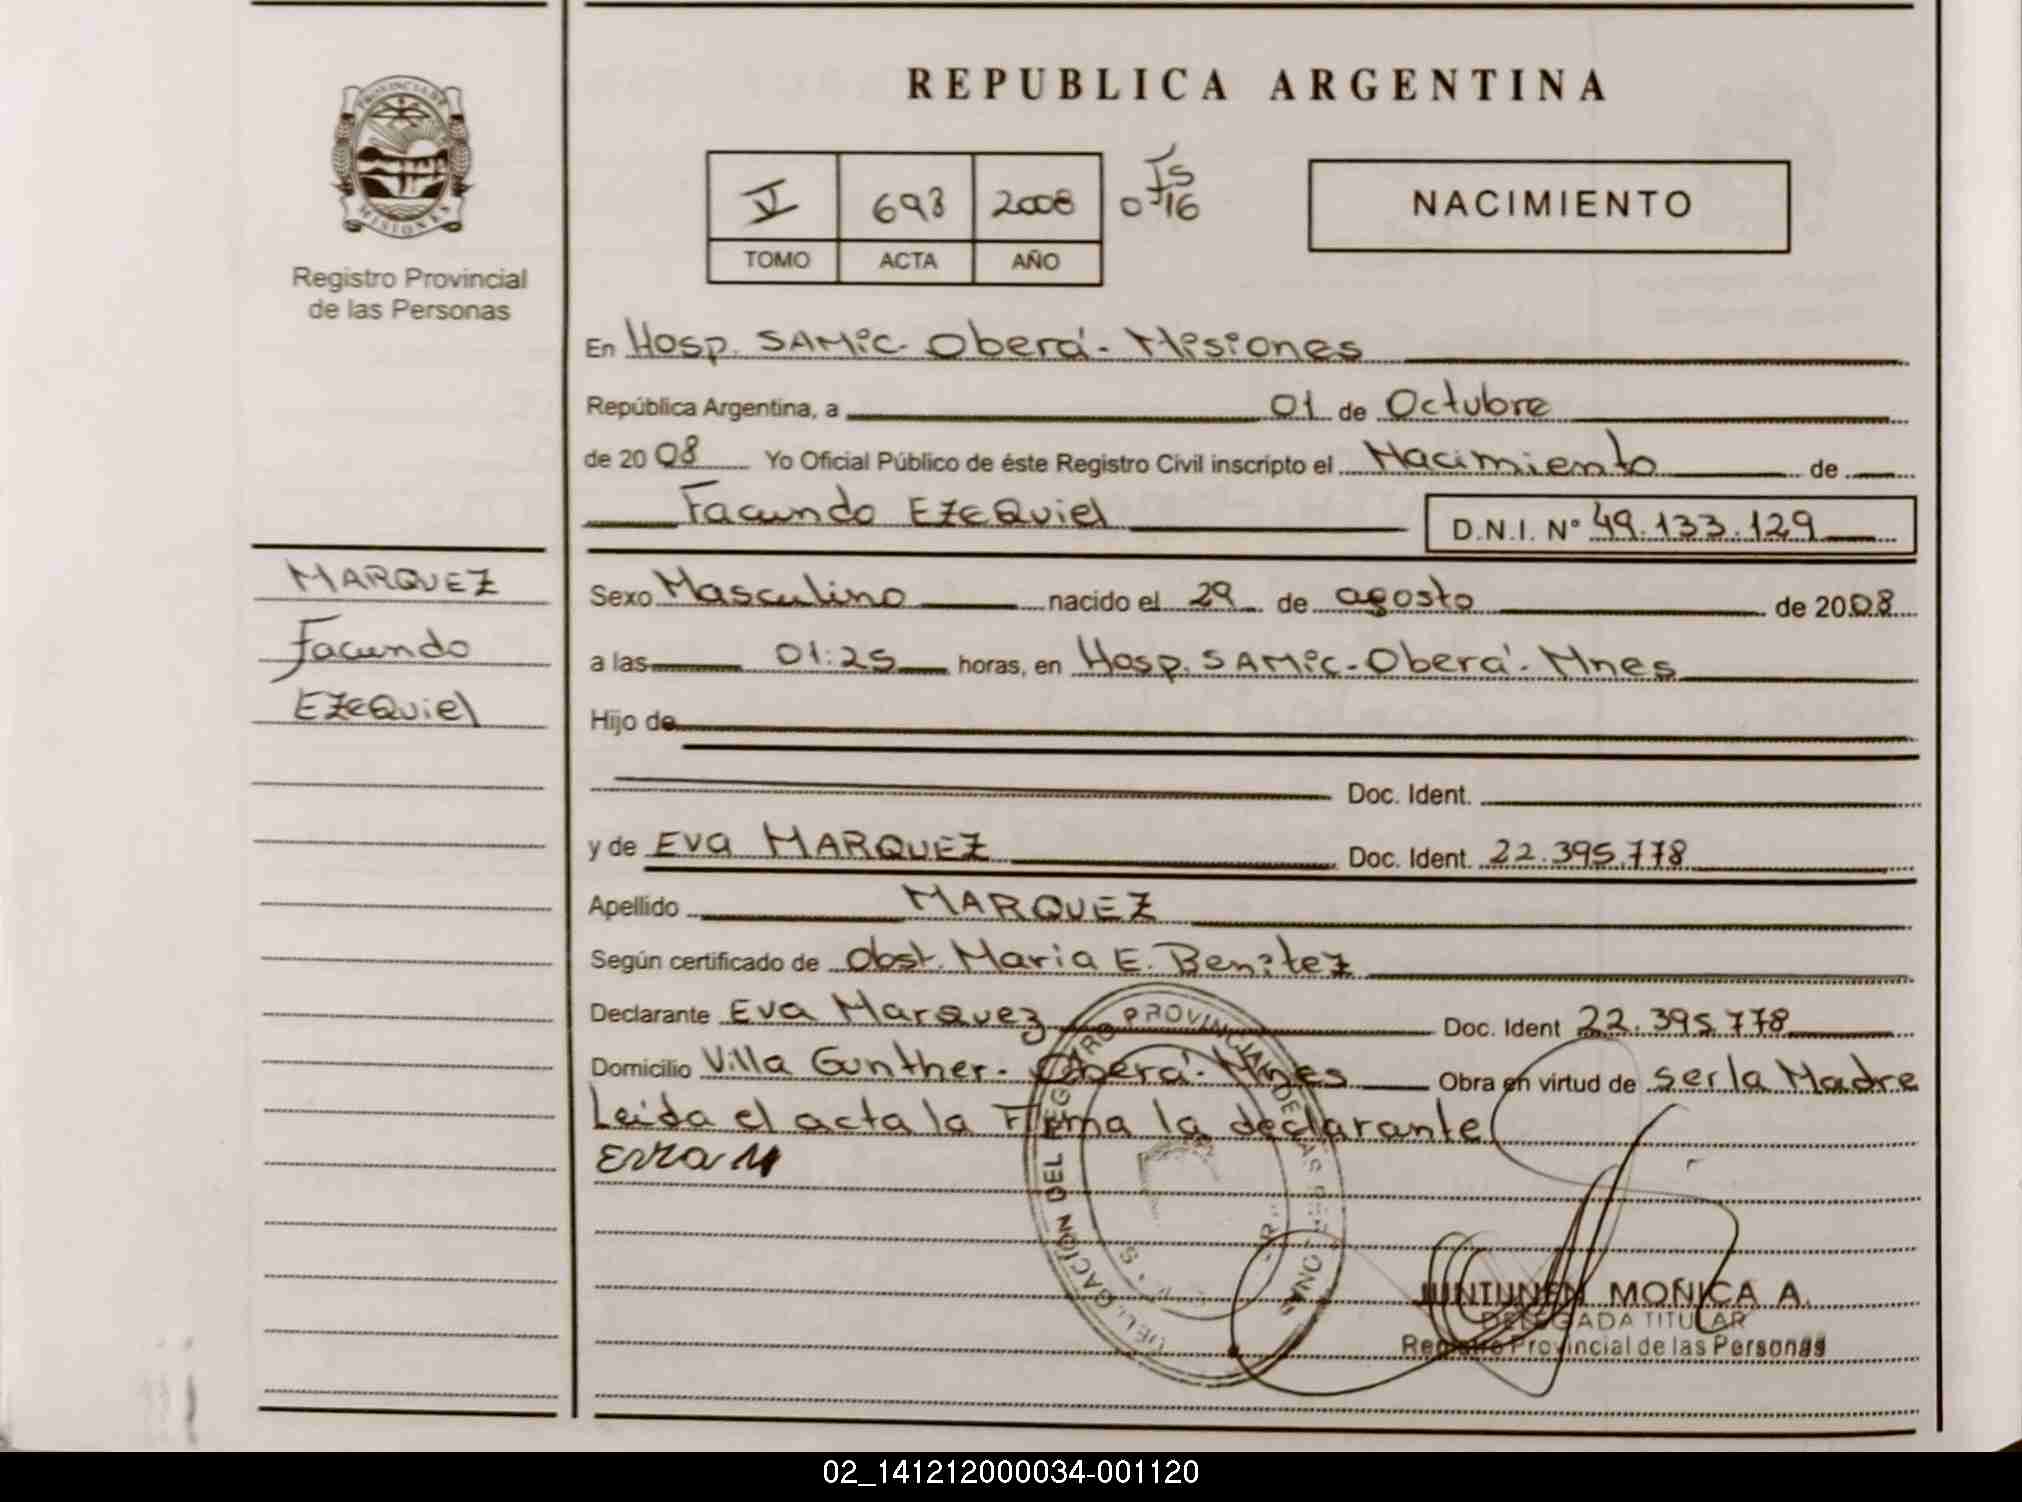 REPUBLICA ARGENTINA
PROVINCIA DE MISIONES
Registro Provincial
de las Personas
V 693 2008
TOMO ACTA AÑO
NACIMIENTO
En Hosp. SAMIC - Oberá - Misiones
República Argentina, a 01 de Octubre
de 2008 Yo Oficial Público de éste Registro Civil inscripto el Nacimiento de
Facundo EZEQuiel D.N.I. Nº 49.133.129
MARQUEZ
Facundo
EZEQuiel
Sexo Masculino nacido el 29 de agosto de 2008
a las 01:25 horas, en Hosp. SAMIC - Oberá - Mnes
Hijo de
Doc. Ident.
y de Eva MARQUEZ Doc. Ident. 22.395.778
Apellido MARQUEZ
Según certificado de Obst. Maria E. Benitez
Declarante Eva Marquez Doc. Ident 22.395.778
Domicilio Villa Gunther - Oberá - Mnes Obra en virtud de ser la Madre
Leida el acta la Firma la declarante
DEL REGISTRO PROVINCIAL DE LAS
JUNTUNEN MONICA A.
DELEGADA TITULAR
Registro Provincial de las Personas
02_141212000034-001120